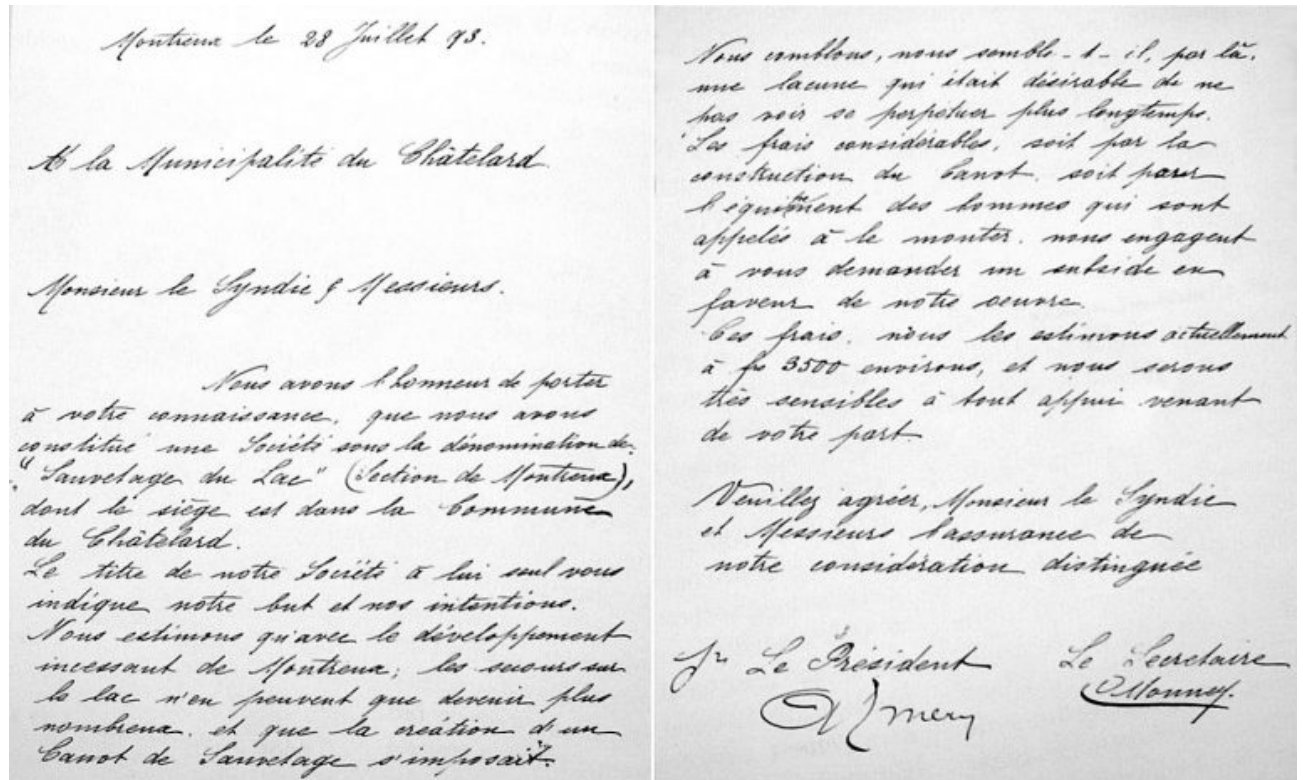 Montreux le 28 Juillet 93.
A la Municipalité du Châtelard
Monsieur le Syndic & Messieurs.
Nous avons l'honneur de porter
à votre connaissance, que nous avons
constitué une Société sous la dénomination de
"Sauvetage du Lac" (Section de Montreux),
dont le siège est dans la Commune
du Châtelard.
Le titre de notre Société à lui seul vous
indique notre but et nos intentions.
Nous estimons qu'avec le développement
incessant de Montreux; les secours sur
le lac n'en peuvent que devenir plus
nombreux. et que la création d'un
Canot de Sauvetage s'imposait.
Nous comblons, nous semble-t-il, par là,
une lacune qui était désirable de ne
pas voir se perpétuer plus longtemps.
Les frais considérables, soit par la
construction du Canot, soit par
l'équipement des hommes qui sont
appelés à le monter, nous engagent
à vous demander un subside en
faveur de notre oeuvre.
Ces frais, nous les estimons actuellement
à frs 3500 environs, et nous serons
très sensibles à tout appui venant
de votre part
Veuillez agréer, Monsieur le Syndic
et Messieurs l'assurance de
notre considération distinguée
Le Président
Le Secretaire